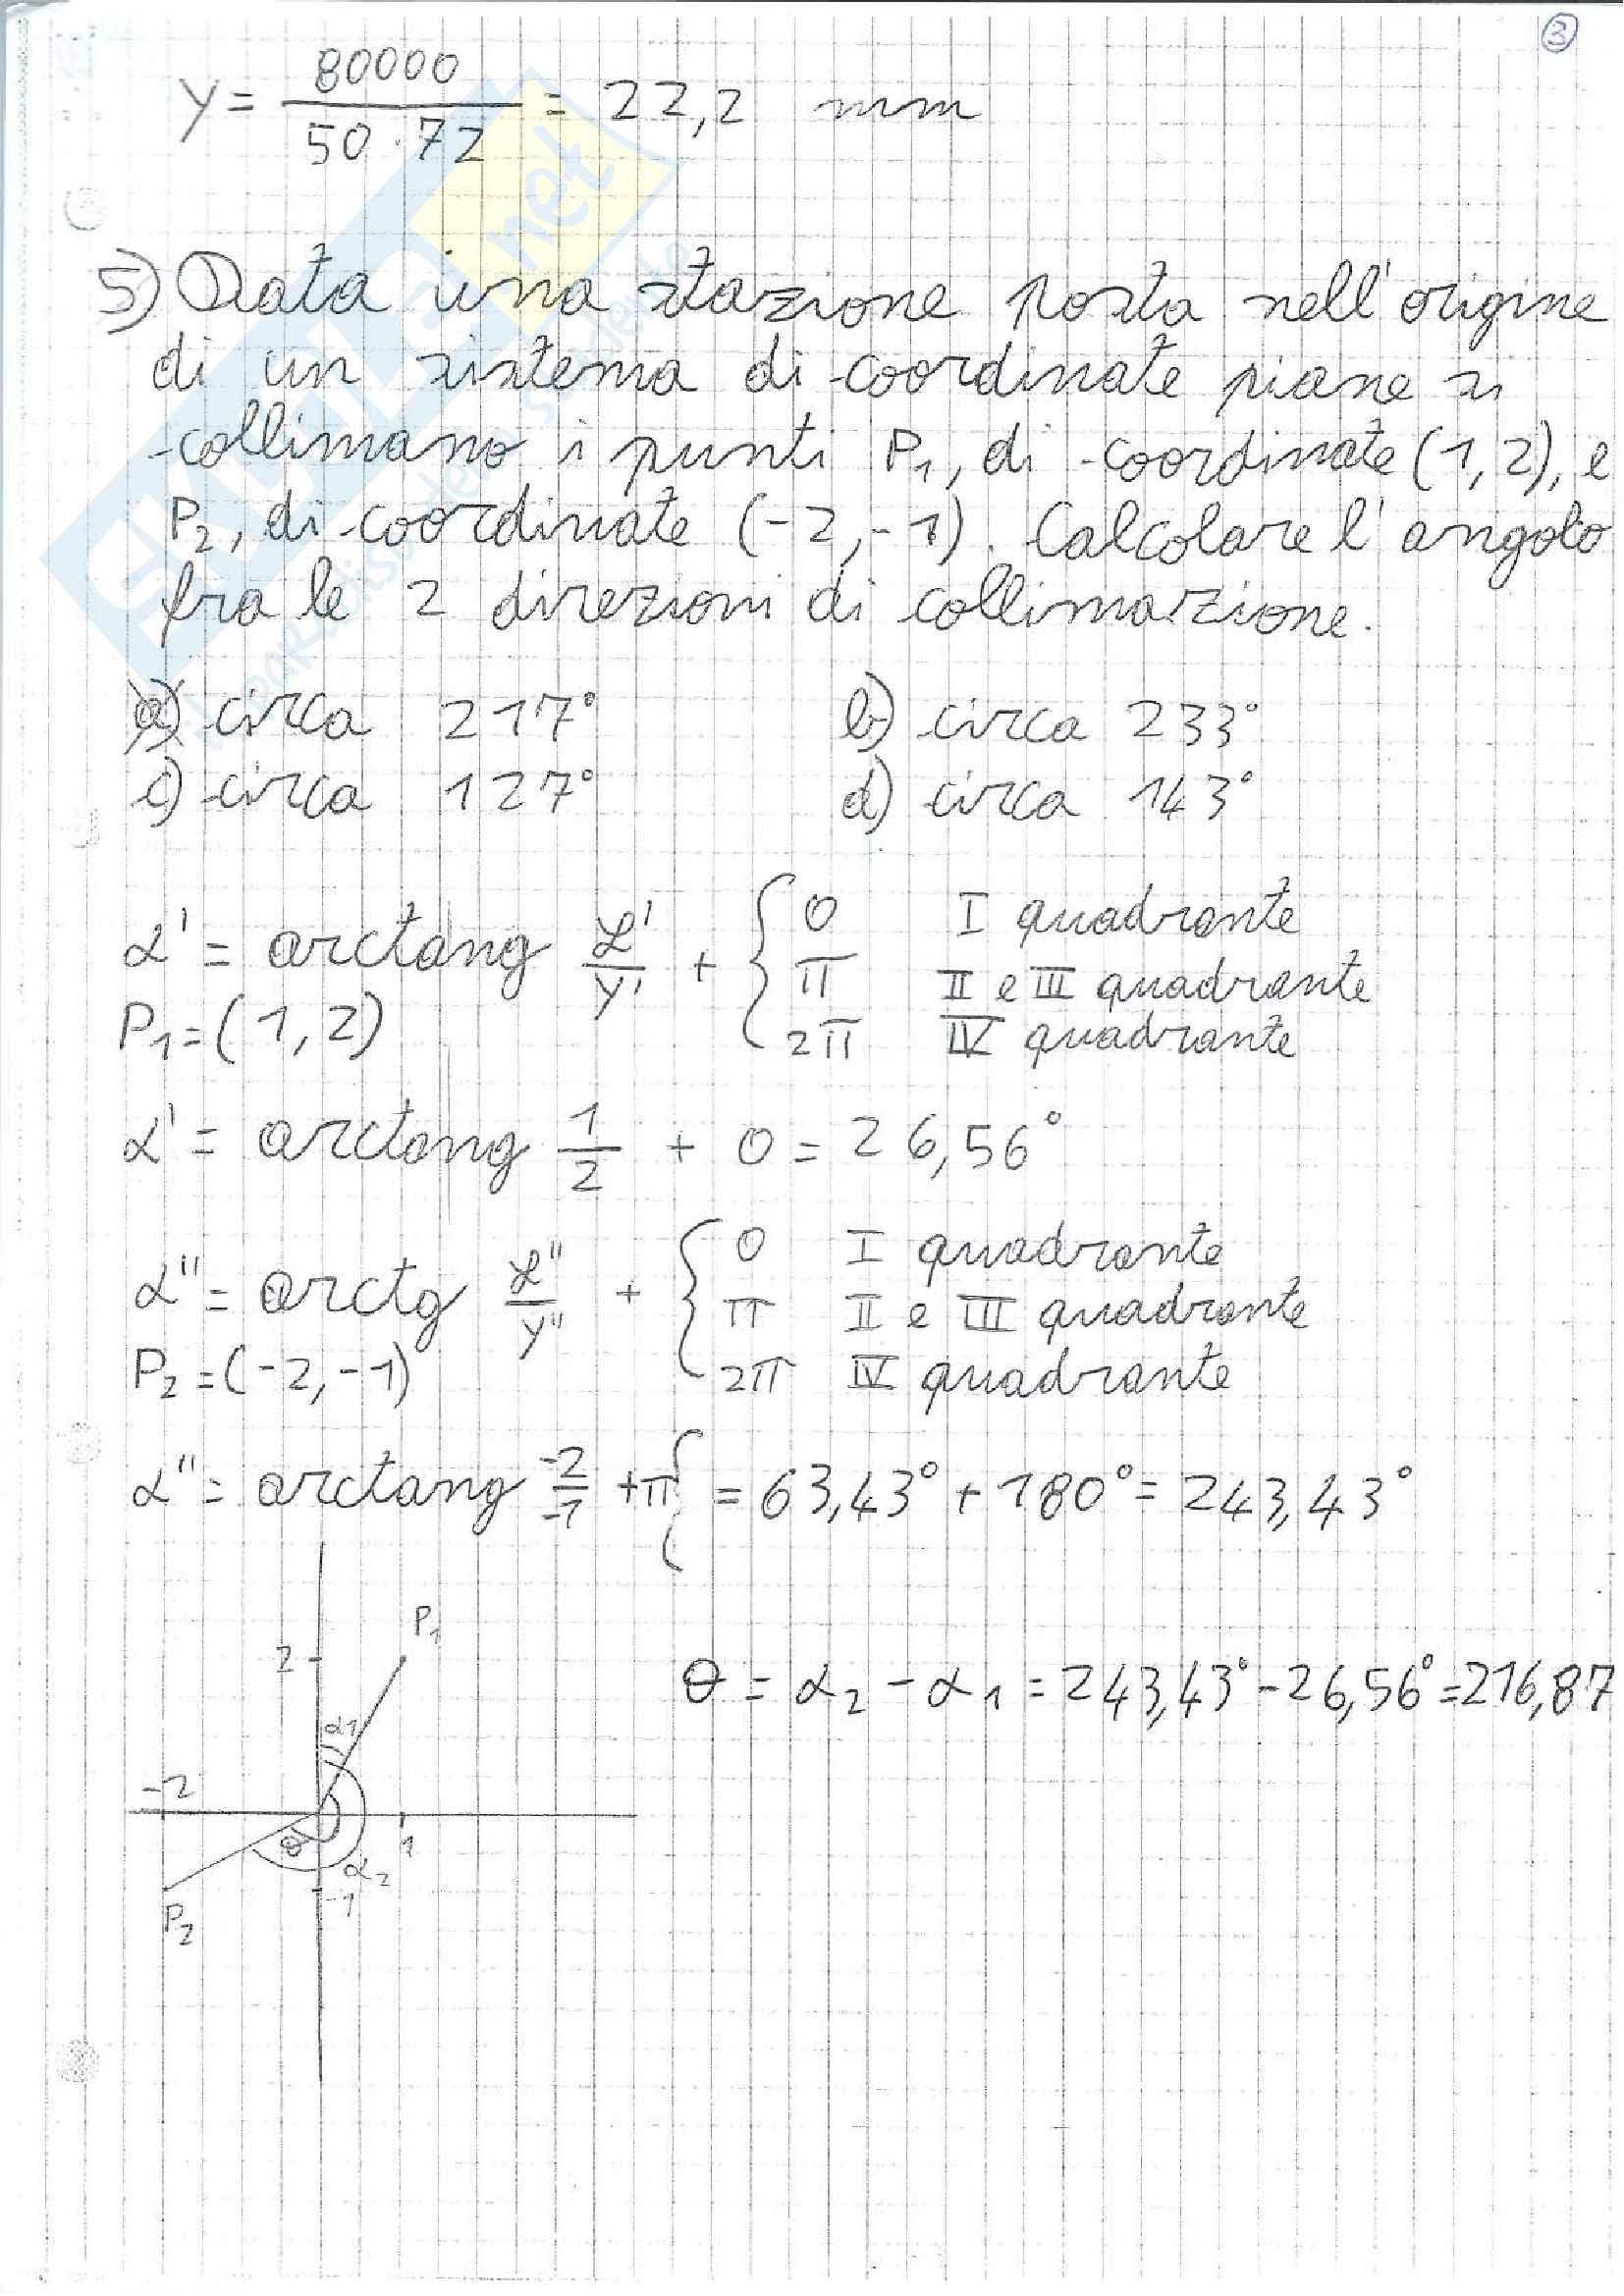 3
Y = 80000 / 50 · 72 = 22,2 mm
5) Data una stazione posta nell'origine
di un sistema di coordinate piane si
collimano i punti P1, di coordinate (1, 2), e
P2, di coordinate (-2, -1). Calcolare l'angolo
fra le 2 direzioni di collimazione.
a) circa 217° b) circa 233°
c) circa 127° d) circa 143°
α' = arctang x'/y' + { 0 I quadrante
π II e III quadrante
2π IV quadrante
P1 = (1, 2)
α' = arctang 1/2 + 0 = 26,56°
α'' = arctg x''/y'' + { 0 I quadrante
π II e III quadrante
2π IV quadrante
P2 = (-2, -1)
α'' = arctang -2/-1 + π { = 63,43° + 180° = 243,43°
P1
2
α1
θ = α2 - α1 = 243,43° - 26,56° = 216,87
-2
1
θ
α2
-1
P2
net